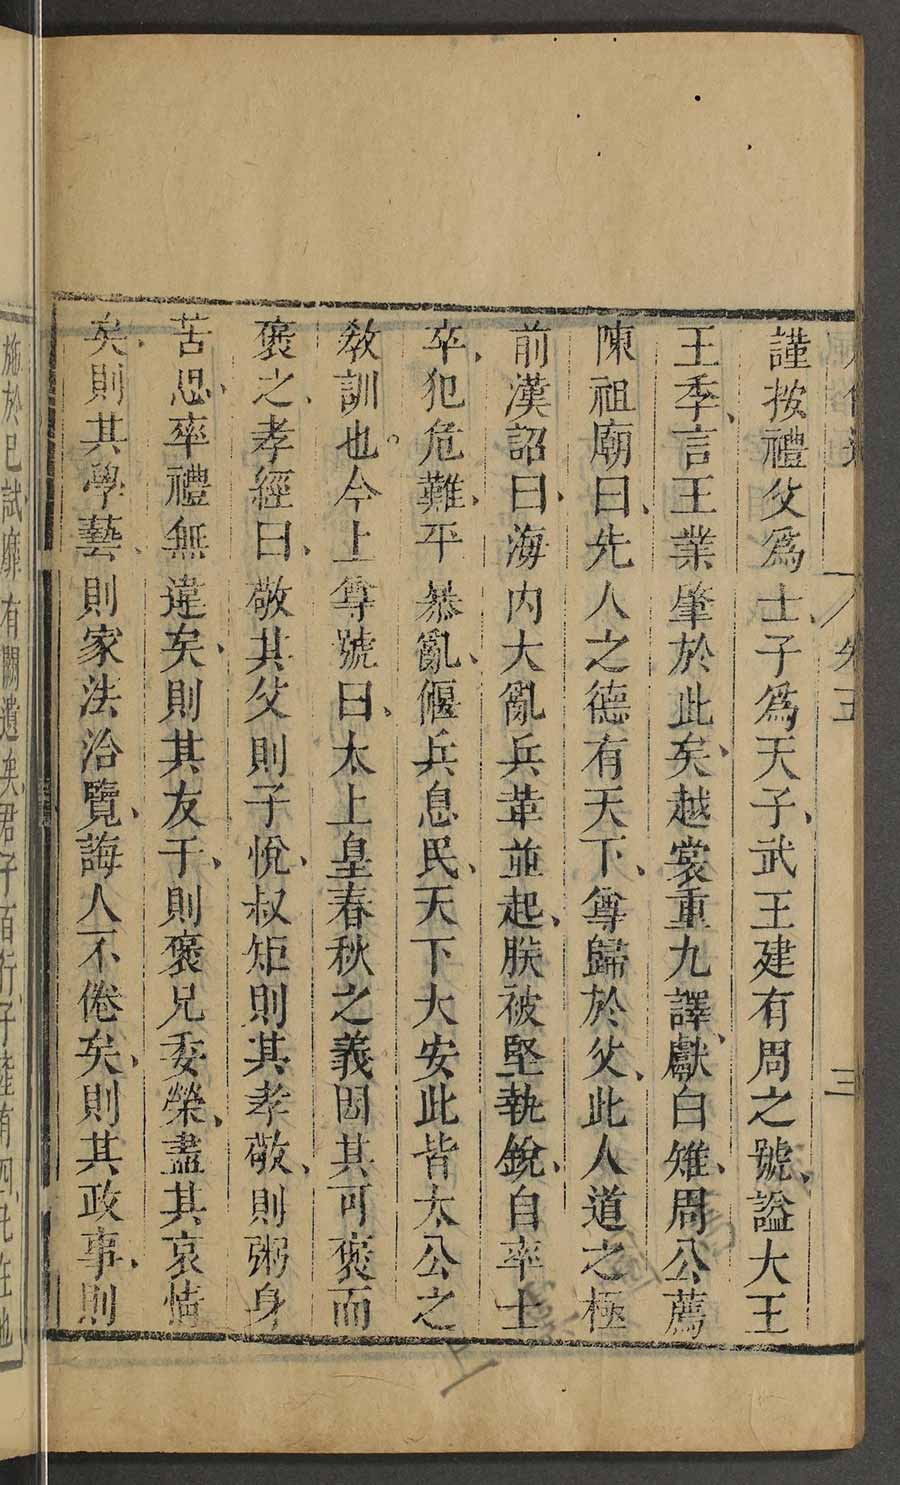 謹按禮父爲士子爲天子武王建有周之號謚大王
王季言王業肇於此矣越裳重九譯獻白雉周公薦
陳祖廟曰先人之德有天下尊歸於父此人道之極
前漢詔曰海内大亂兵革並起朕被堅執銳自率士
卒犯危難平暴亂偃兵息民天下大安此皆太公之
教訓也今上尊號曰太上皇春秋之義因其可褒而
褒之孝經曰敬其父則子悅叔矩則其孝敬則粥身
苦思率禮無違矣則其友于則褒兄委榮盡其哀情
矣則其學藝則家法洽覽誨人不倦矣則其政事則
施於已試靡有闕遺矣君子百行子陸有四